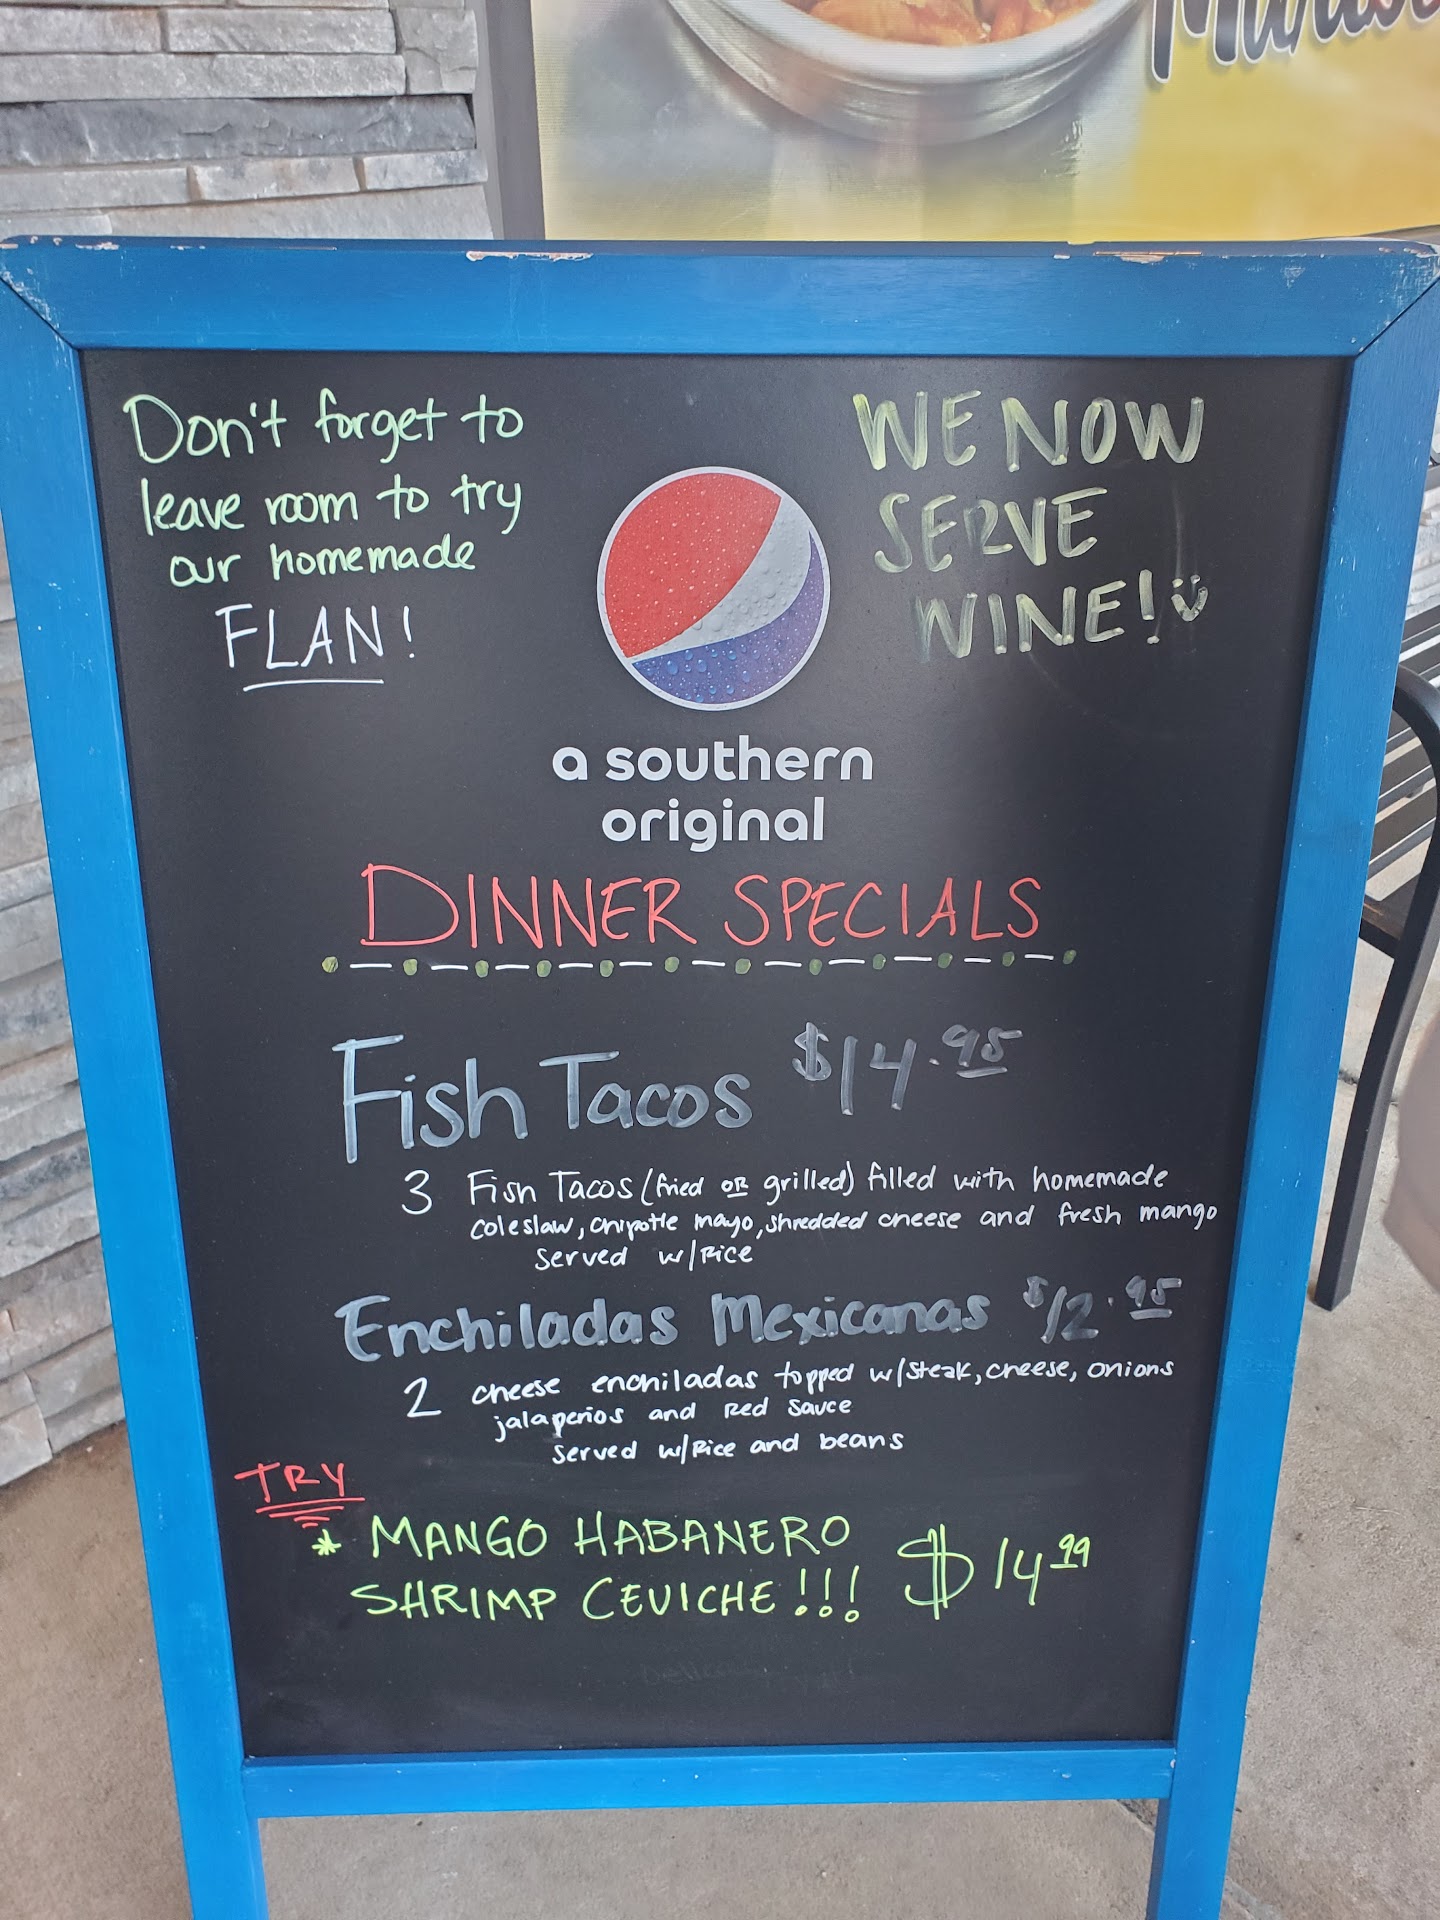 Don't forget to
leave room to try
our homemade
FLAN!
WE NOW
SERVE
WINE!
a southern
original
DINNER SPECIALS
Fish Tacos $14.95
3 Fish Tacos (fried OR grilled) filled with homemade
coleslaw, chipotle mayo, shredded cheese and fresh mango
served w/Rice
Enchiladas Mexicanas $12.95
2 cheese enchiladas topped w/steak, cheese, onions
jalapeños and Red sauce
served w/Rice and beans
TRY
* MANGO HABANERO
SHRIMP CEVICHE!!! $14.99